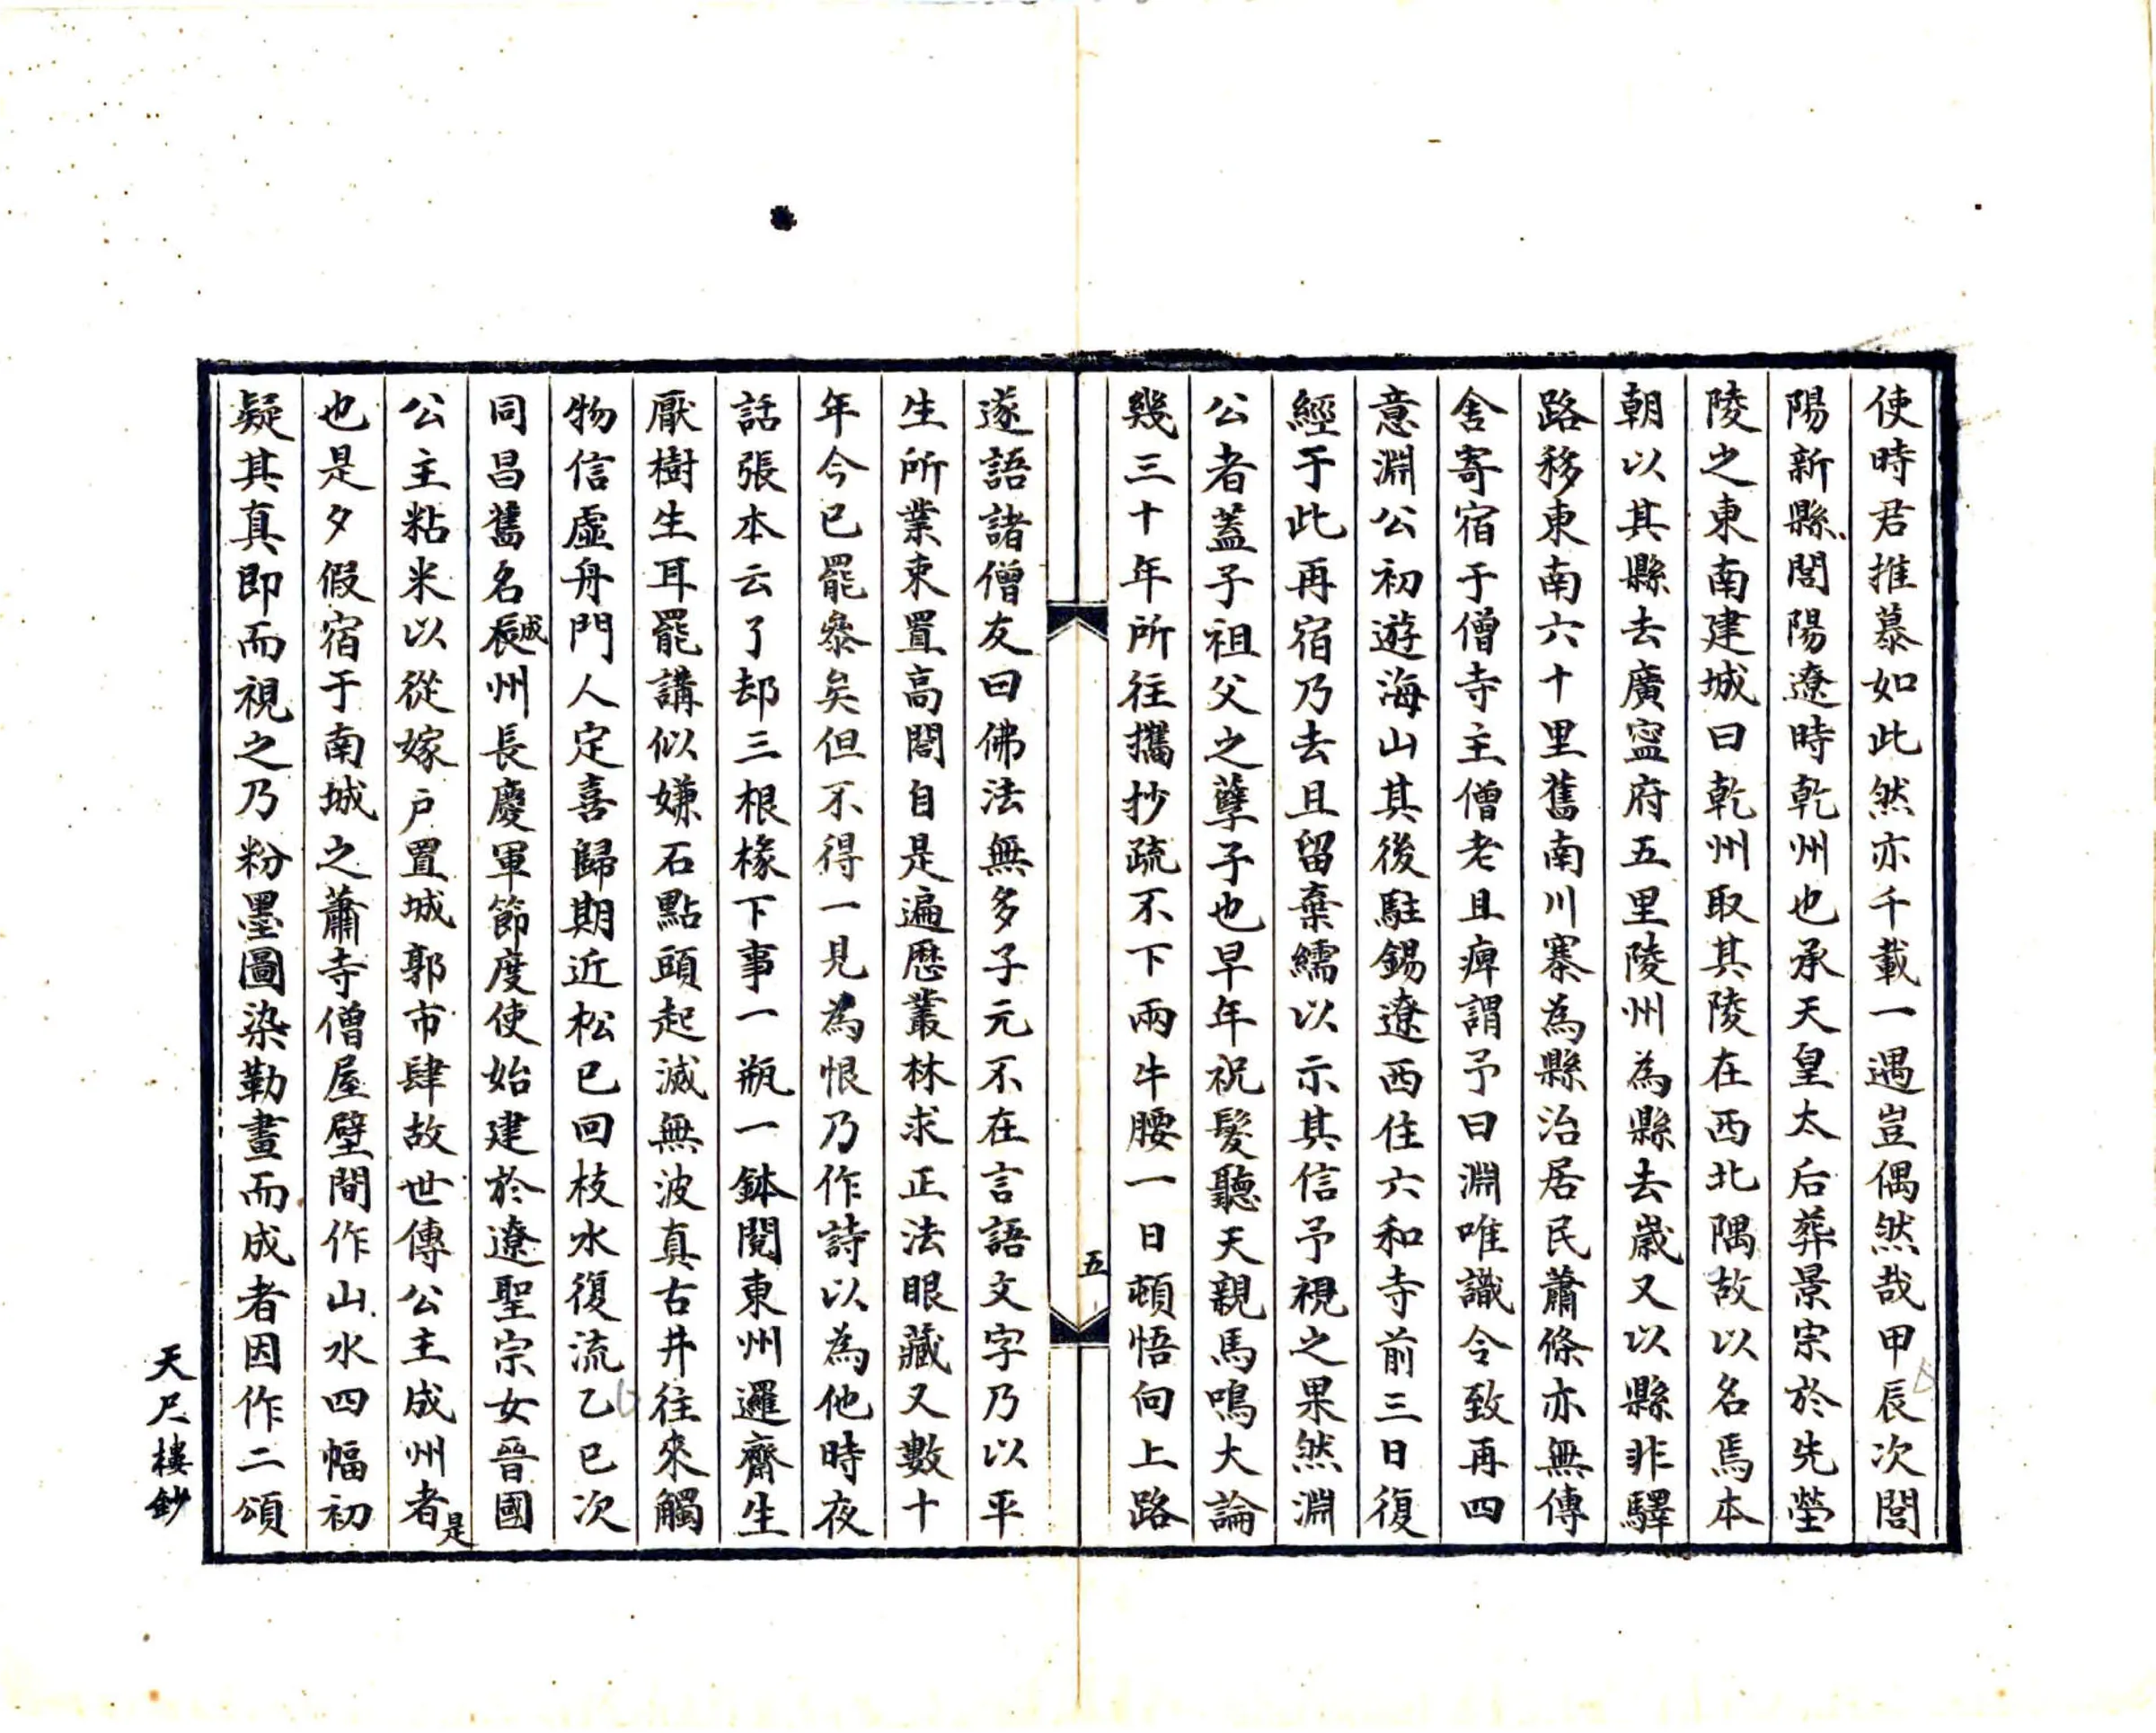 使時君推慕如此然亦千載一遇豈偶然哉甲辰次閭
陽新縣閭陽遼時乾州也承天皇太后葬景宗於先塋
陵之東南建城曰乾州取其陵在西北隅故以名焉本
朝以其縣去廣寧府五里陵州為縣去歲又以縣非驛
路移東南六十里舊南川寨為縣治居民蕭條亦無傳
舍寄宿于僧寺主僧老且痺謂予曰淵唯識令致再四
意淵公初遊海山其後駐錫遼西住六和寺前三日復
經于此再宿乃去且留棄繻以示其信予視之果然淵
公者蓋子祖父之孽子也早年祝髮聽天親馬鳴大論
幾三十年所往攜抄疏不下兩牛腰一日頓悟向上路
五
遂語諸僧友曰佛法無多子元不在言語文字乃以平
生所業束置高閣自是遍歷叢林求正法眼藏又數十
年今已罷參矣但不得一見為恨乃作詩以為他時夜
話張本云了却三根椽下事一瓶一鉢閱東州邏齋生
厭樹生耳罷講似嫌石點頭起滅無波真古井往來觸
物信虛舟門人定喜歸期近松已回枝水復流乙巳次
同昌舊名成辰州長慶軍節度使始建於遼聖宗女晉國
公主粘米以從嫁戶置城郭市肆故世傳公主成州者是
也是夕假宿于南城之蕭寺僧屋壁間作山水四幅初
疑其真即而視之乃粉墨圖染勒畫而成者因作二頌
天尺樓鈔